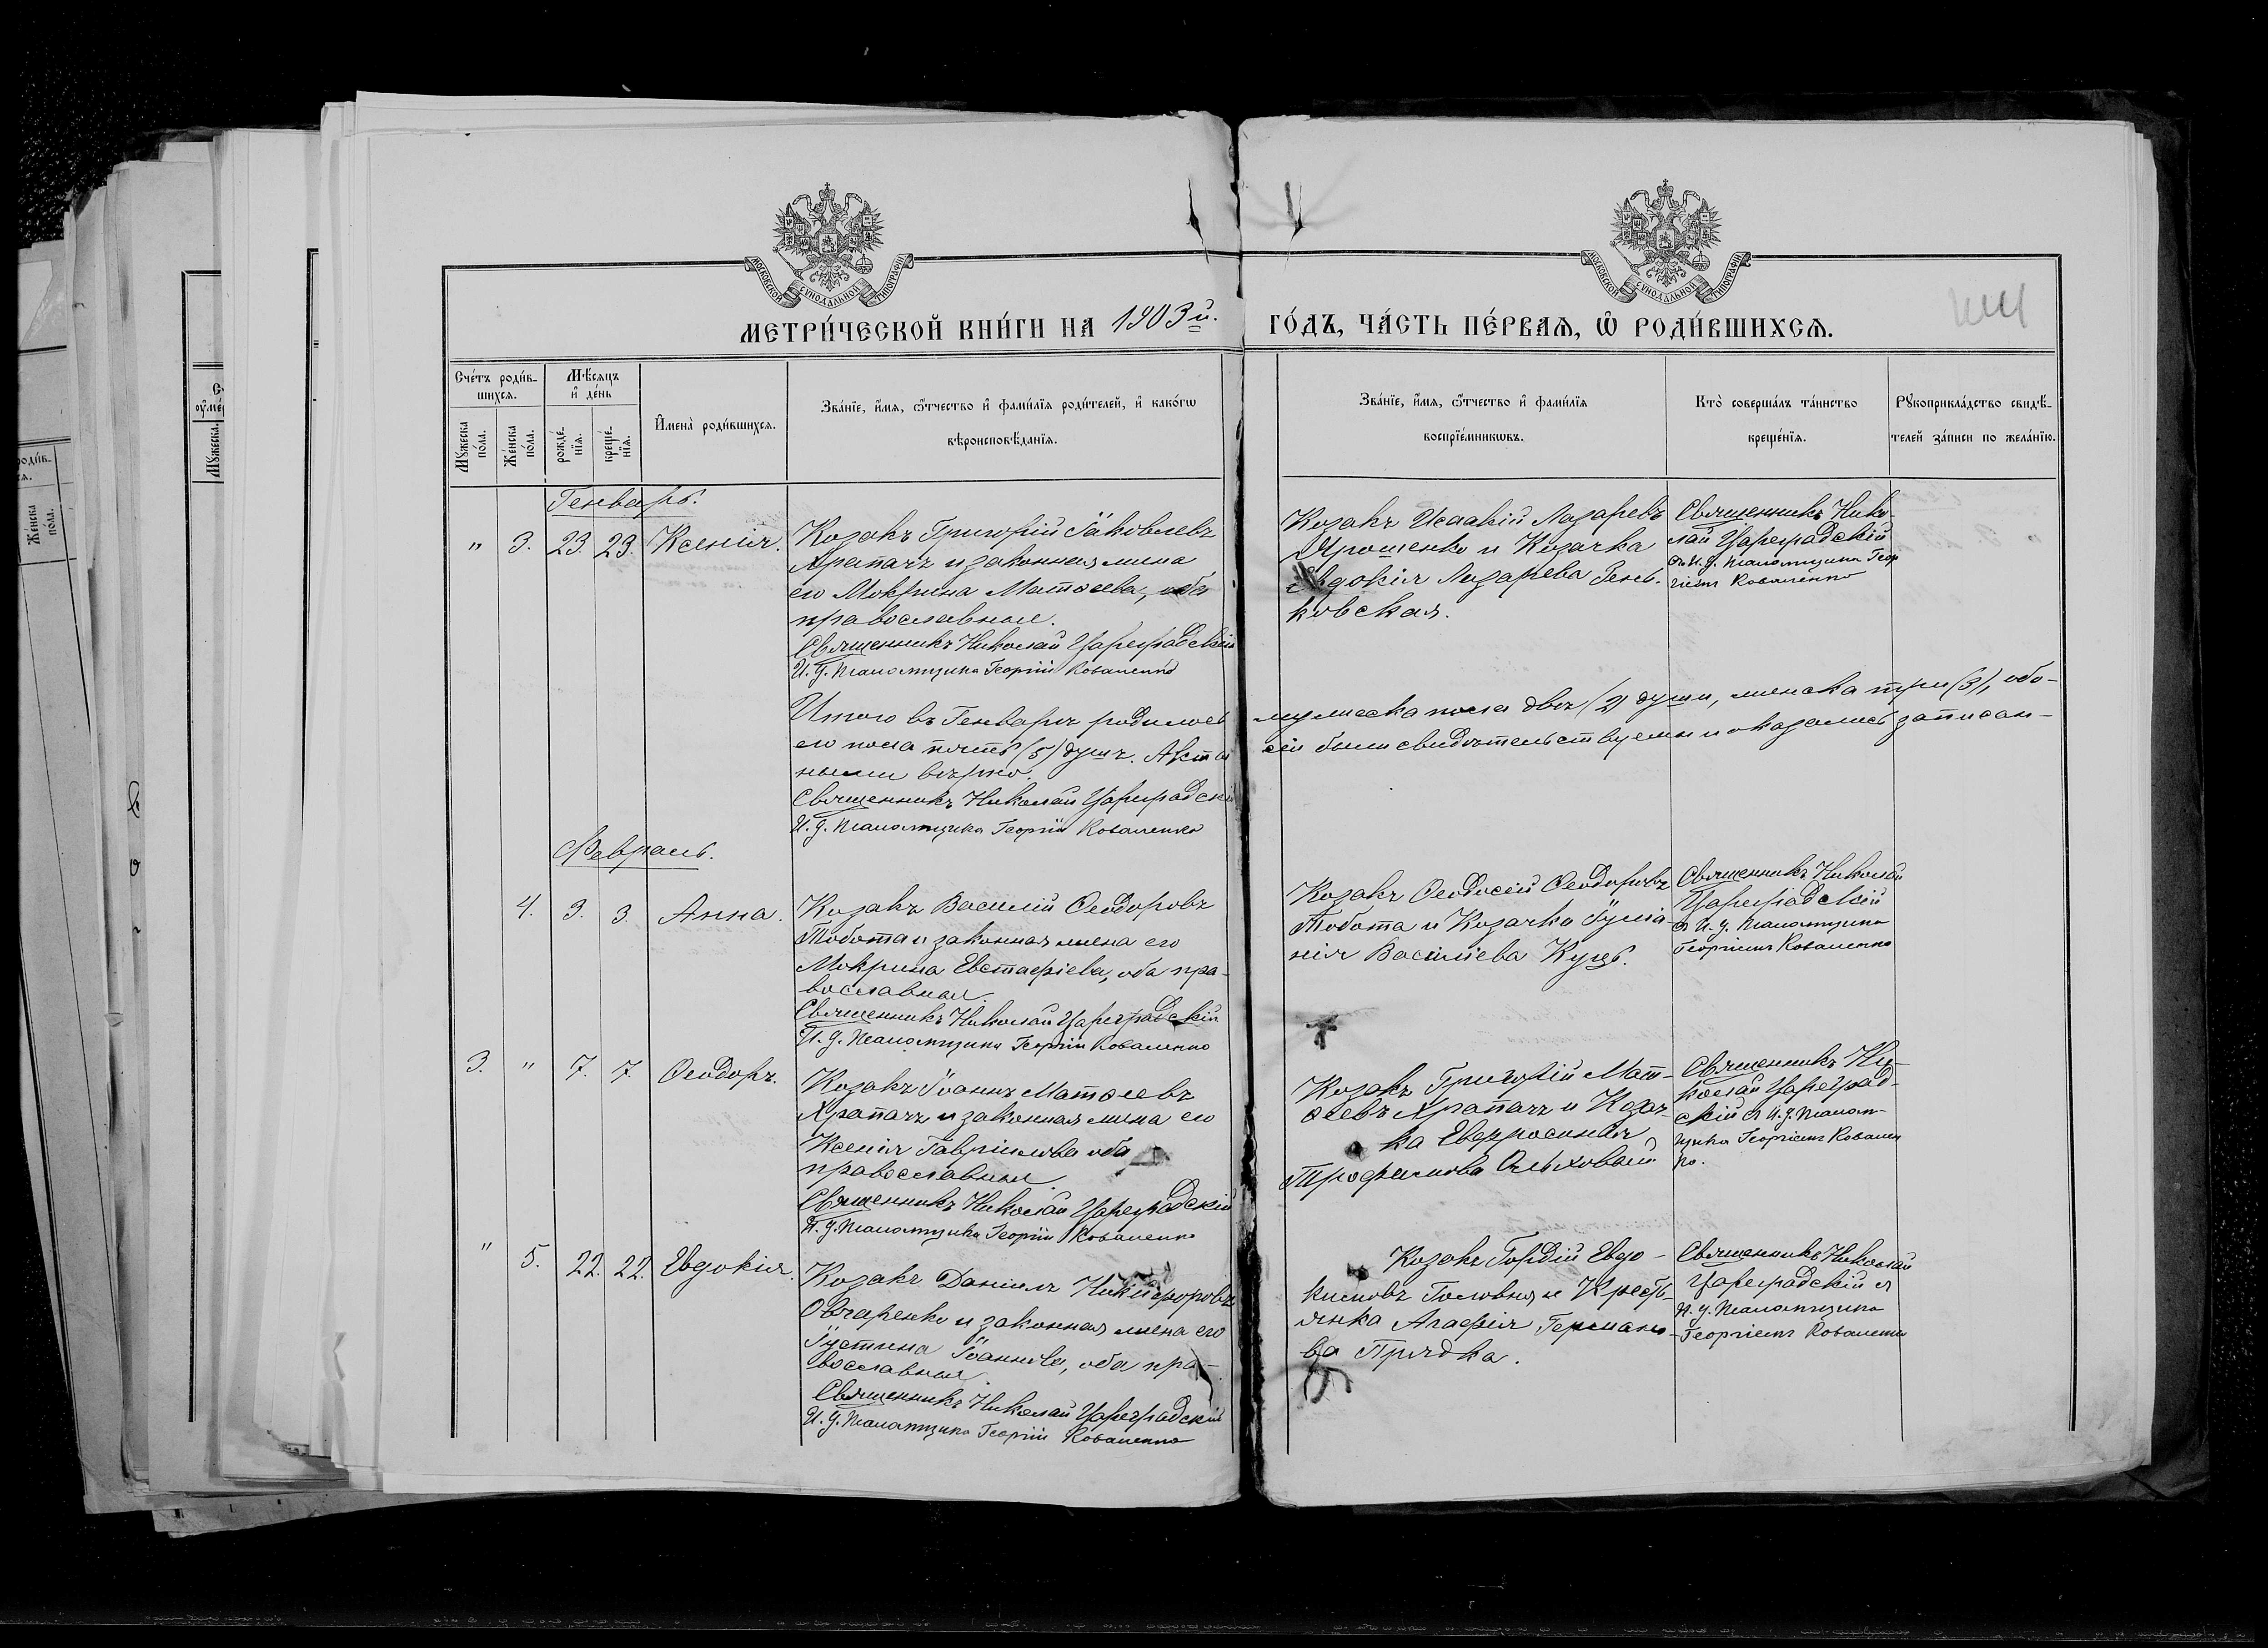 МОСКОВСКОЙ СѴНОДАЛЬНОЙ ТИПОГРАФІИ
МОСКОВСКОЙ СѴНОДАЛЬНОЙ ТИПОГРАФІИ
МЕТРИ́ЧЕСКОЙ КНИ́ГИ НА 1903й.
ГО́ДЪ, ЧА́СТЬ ПЕ́РВАѦ, Ѿ РОДИ́ВШИХСѦ.
Сче́тъ роди́в-
шихся.
Мꙋжеска
по́ла.
Же́нска
по́ла.
Мѣ́сяцъ
и҆ де́нь
рожде́-
нїя.
креще́-
нїя.
И҆мена̀ роди́вшихся.
Зва́нїе, и҆́мя, ѻ҆́тчество и҆ фами́лїя роди́телей, и҆ како́гѡ
вѣроисповѣ́данїя.
Зва́нїе, и҆́мя, ѻ҆́тчество и҆ фами́лїя
воспрїе́мникѡвъ.
Кто̀ соверша́лъ та́инство
креще́нїя.
Рꙋкоприкла́дство свидѣ́-
телей за́писи по жела́нїю.
Генварь.
" 3. 23. 23. Ксенія.
Козакъ Григорій Іаковлевъ
Храпачъ и законная жена
его Мокрина Матѳеева, оба
православные.
Священникъ Николай Цареградскій
И. д. псаломщика Георгій Коваленко
Козакъ Исаакій Лазаревъ
Ярошенко и Козачка
Евдокія Лазарева Гень-
ковская.
Священникъ Нико-
лай Цареградскій
съ И. д. псаломщика Геор
гіем Коваленко
Итого въ Генварѣ родилось мужеска пола двѣ (2) души, женска три (3), обо-
его пола пять (5) душъ. Акты сіи были свидѣтельствуемы и оказались записан-
ными вѣрно.
Священникъ Николай Цареградскій
И. д. псаломщика Георгій Коваленко
Февраль.
4. 3. 3. Анна.
Козакъ Василій Ѳеодоровъ
Тобота и законная жена его
Мокрина Евстафіева, оба пра-
вославные.
Священникъ Николай Цареградскій
И. д. псаломщика Георгій Коваленко
Козакъ Ѳеодосій Ѳеодоровъ
Тобота и Козачка Іуліа-
нія Василіева Куць.
Священникъ Николай
Цареградскій
съ И. д. псаломщика
Георгіем Коваленко
3. " 7. 7. Ѳеодоръ.
Козакъ Іоаннъ Матѳеевъ
Храпачъ и законная жена его
Ксенія Гавріилова оба
православные.
Священникъ Николай Цареградскій
И. д. псаломщика Георгій Коваленко
Козакъ Григорій Мат-
ѳеевъ Храпачъ и Козач-
ка Евфросинія
Трофимова Ольховый
Священникъ Ни-
колай Цареград-
скій съ И. д. псалом-
щика Георгіем Ковален
ко.
" 5. 22. 22. Евдокія.
Козакъ Даніилъ Никифоровъ
Овчаренко и законная жена его
Іустина Іоаннова, оба пра-
вославные.
Священникъ Николай Цареградскій
И. д. псаломщика Георгій Коваленко
Козакъ Гордій Евдо-
кимовъ Головня и Кресть-
янка Агафія Германо-
ва Прядка.
Священникъ Николай
Цареградскій съ
И. д. псаломщика
Георгіем Коваленко